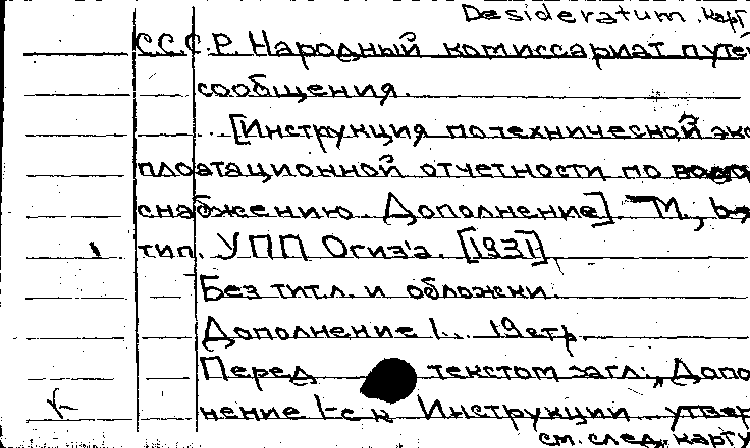 Desideratum. карт
С.С.С.Р. Народный комиссариат путе
сообщения.
[Инструкция по технической экс
плоатационной отчетности по водо
снабжению. Дополнение]. М., 6-я
тип. УПП Огиз'а. [1931]
Без тит.л. и обложки.
Дополнение 1. 19 стр.
Перед текстом загл.: „Допо
нение 1-е к Инструкции утвер
см. след. карту